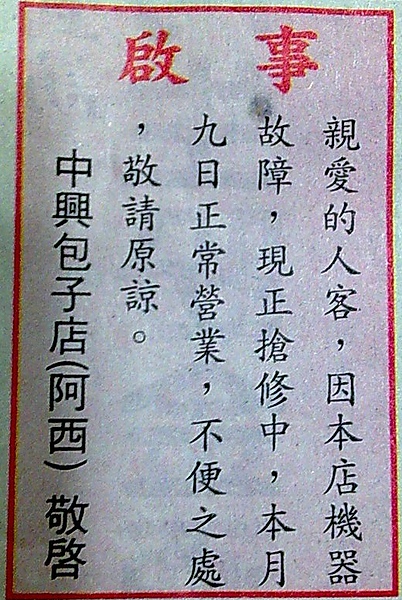 啟事
親愛的人客，因本店機器
故障，現正搶修中，本月
九日正常營業，不便之處
，敬請原諒。
中興包子店(阿西) 敬啓